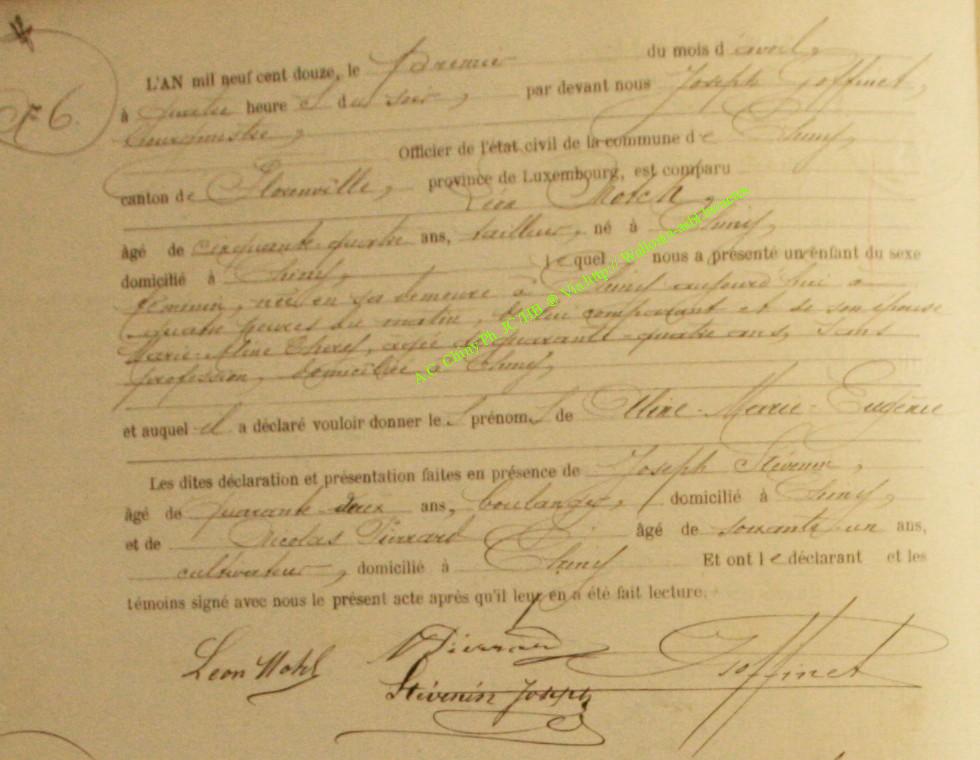 N° 6.
L'AN mil neuf cent douze, le premier du mois d'avril,
à quatre heures du soir, par devant nous Joseph Goffinet,
bourgmestre,
Officier de l'état civil de la commune de Chiny,
canton de Florenville, province de Luxembourg, est comparu
Léon Motch,
âgé de cinquante-quatre ans, tailleur, né à Chiny,
domicilié à Chiny, lequel nous a présenté un enfant du sexe
féminin, née en sa demeure à Chiny aujourd'hui à
quatre heures du matin, de lui comparant et de son épouse
Marie-Aline, âgée de quarante-quatre ans, sans
profession, domiciliée à Chiny,
et auquel il a déclaré vouloir donner les prénoms de Aline-Marie-Eugénie
Les dites déclaration et présentation faites en présence de Joseph Stévenin,
âgé de quarante deux ans, boulanger, domicilié à Chiny,
et de Nicolas Pierrard âgé de soixante un ans,
cultivateur, domicilié à Chiny Et ont le déclarant et les
témoins signé avec nous le présent acte après qu'il leur en a été fait lecture.
Léon Motch N Pierrard Goffinet
Stévenin Joseph
A.C. Chiny Ph. JC THB ® Via http://